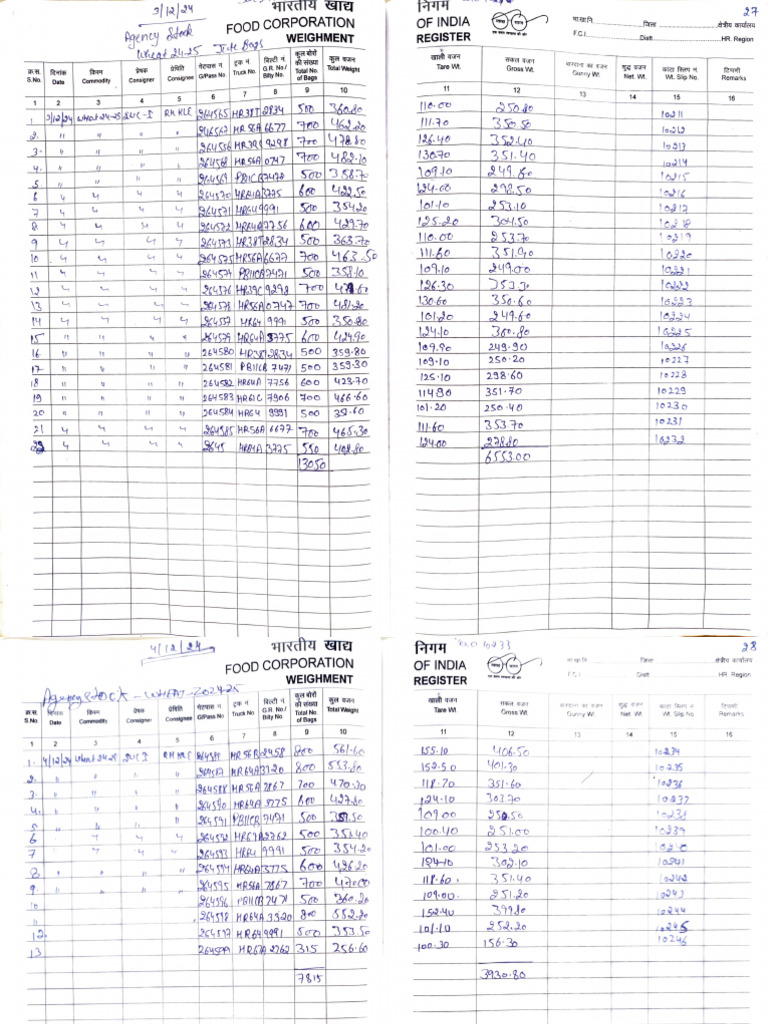 3/12/24
भारतीय खाद्य
FOOD CORPORATION
WEIGHMENT
Agency Stock
Wheat 24-25 Jute Bags
क्र.स. S.No. दिनांक Date किस्म Commodity प्रेषक Consigner प्रेषिति Consignee गेटपास नं G/Pass No. ट्रक नं. Truck No. बिल्टी नं. G.R. No./ Bilty No. कुल बोरों की संख्या Total No. of Bags कुल वजन Total Weight
1 2 3 4 5 6 7 8 9 10
3/12/24 Wheat 24-25 264565 HR38T 2834 500 360.80
2. " " 6677 700 462.20
3. 264556 HR39C 9298 700 478.80
4. 264568 HR56A 0747 700 482.10
5 264569 PB11CB 7478 500 358.70
6 264570 HR61A 3775 600 422.50
7 264571 HR64 9991 500 354.20
8 264572 HR64A 7756 600 429.70
9 264573 HR38T 2834 500 363.70
10 264575 HR56A 6677 700 463.50
11 264574 PB11CB 7471 500 358.10
12 264576 HR39C 9298 700
13 264578 HR56A 0747 700 481.20
14 264557 HR64 9991 500 350.80
15 264579 HR64A 3775 600 424.90
16 264580 HR38T 2834 500 359.80
17 264581 PB11CB 7471 500 359.30
18 264582 HR64A 7756 600 423.70
19 264583 HR61C 7906 700 466.60
20 264584 HR64 9991 500
21 264585 HR56A 6677 700 465.30
22 2645 HR64A 3775 550 402.80
13050
27
निगम
OF INDIA
REGISTER
भा.खा.नि. जिला क्षेत्रीय कार्यालय
F.C.I. Distt HR. Region
खाली वजन Tare Wt. सकल वजन Gross Wt. बारदाना का वजन Gunny Wt. शुद्ध वजन Net. Wt. कांटा स्लिप नं. Wt. Slip No. टिप्पणी Remarks
11 12 13 14 15 16
110.00 250.80 10211
111.70 350.50 10212
126.40 352.40 10213
130.70 351.40 10214
109.10 249.60 10215
124.00 298.50 10216
101.10 253.10 10217
125.20 304.50 10218
110.00 253.70 10219
111.60 351.90 10220
109.10 249.00 10221
126.30 353.30 10222
130.60 350.60 10223
101.20 249.60 10224
124.10 300.80 10225
109.90 249.90 10226
109.10 250.20 10227
125.10 298.60 10228
114.90 351.70 10229
101.20 250.40 10230
111.60 353.70 10231
124.00 278.80 10232
6553.00
4/12/24
भारतीय खाद्य
FOOD CORPORATION
WEIGHMENT
Agency Stock - WHEAT - 2024-25
क्र.स. S.No. दिनांक Date किस्म Commodity प्रेषक Consigner प्रेषिति Consignee गेटपास नं G/Pass No. ट्रक नं. Truck No. बिल्टी नं. G.R. No./ Bilty No. कुल बोरों की संख्या Total No. of Bags कुल वजन Total Weight
1 2 3 4 5 6 7 8 9 10
1. 4/12/24 Wheat 24-25 2458 800 561.60
2. HR64A 3320 800 553.80
3. 264588 HR56A 7867 700 470.30
4. 264590 HR64A 3775 600 427.80
5 264591 PB11CB 7471 500
6 264592 2762 500 351.40
7 264593 HR64 9991 500 354.20
8. 264594 HR64A 3775 600 426.20
9. 264595 HR56A 7867 700 470.00
10 264596 PB11CB 7471 500 360.20
11 264598 HR64A 3320 800 552.20
12. 264597 HR64 9991 500 353.50
13 264599 2762 315 256.60
7815
28
निगम
OF INDIA
REGISTER
भा.खा.नि. जिला क्षेत्रीय कार्यालय
F.C.I. Distt HR. Region
खाली वजन Tare Wt. सकल वजन Gross Wt. बारदाना का वजन Gunny Wt. शुद्ध वजन Net. Wt. कांटा स्लिप नं. Wt. Slip No. टिप्पणी Remarks
11 12 13 14 15 16
155.10 406.50 10234
152.50 401.30 10235
118.70 351.60 10236
124.10 303.70 10237
109.00 250.50 10238
100.40 251.00 10239
101.00 253.20 10240
124.10 302.10 10241
118.60 351.40 10242
109.00 251.20 10243
152.40 399.80 10244
101.10 252.20 10245
100.30 156.30 10246
3930.80